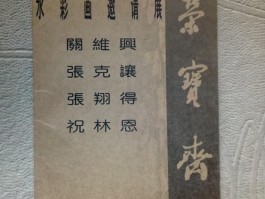 水彩画邀請展
關維興
張克讓
張翔得
祝林恩
榮寶齋